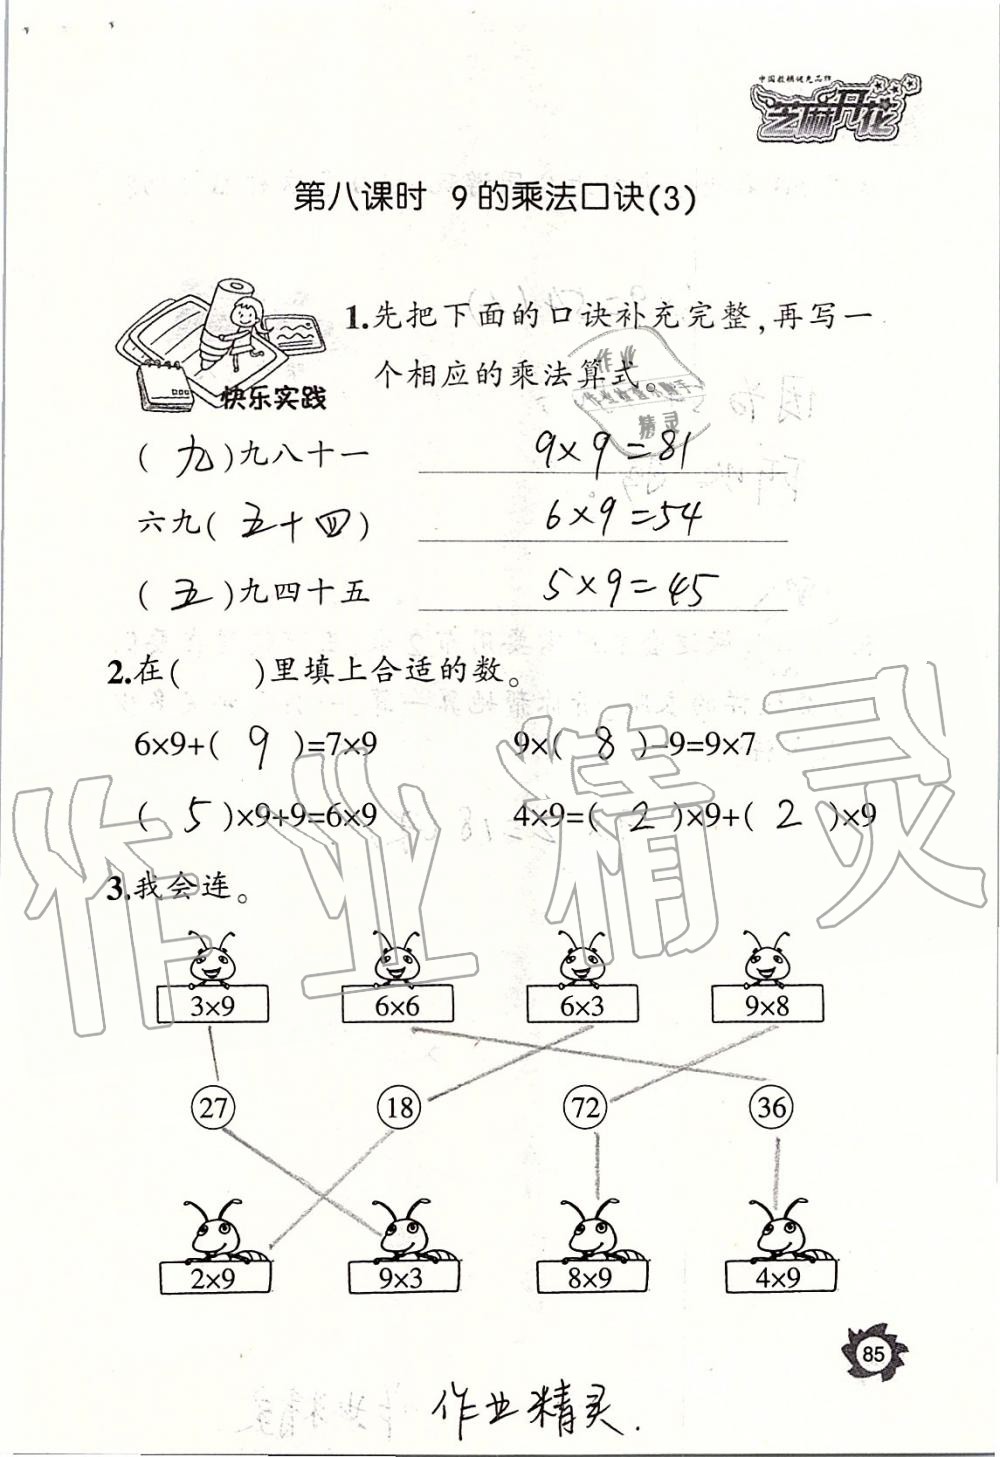 中国教辅领先品牌
芝麻开花
第八课时 9的乘法口诀(3)
快乐实践
1.先把下面的口诀补充完整,再写一
个相应的乘法算式。
作业
精灵
(九)九八十一 9×9=81
六九(五十四) 6×9=54
(五)九四十五 5×9=45
2.在( )里填上合适的数。
6×9+( 9 )=7×9 9×( 8 )-9=9×7
( 5 )×9+9=6×9 4×9=( 2 )×9+( 2 )×9
3.我会连。
作业精灵
3×9 6×6 6×3 9×8
27 18 72 36
2×9 9×3 8×9 4×9
85
作业精灵.